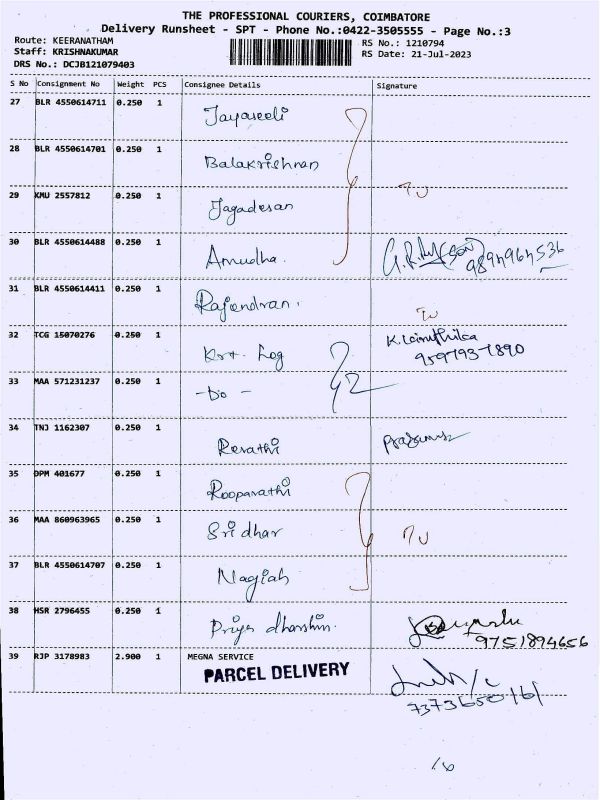 THE PROFESSIONAL COURIERS, COIMBATORE
Delivery Runsheet - SPT - Phone No.:0422-3505555 - Page No.:3
Route: KEERANATHAM RS No.: 1210794
Staff: KRISHNAKUMAR RS Date: 21-Jul-2023
DRS No.: DCJB121079403
S No Consignment No Weight PCS Consignee Details Signature
27 BLR 4550614711 0.250 1 Jayaseeli
28 BLR 4550614701 0.250 1 Balakrishnan
29 KMU 2557812 0.250 1 Jagadesan
30 BLR 4550614488 0.250 1 Amudha. 9894964536
31 BLR 4550614411 0.250 1 Rajendran.
32 TCG 15070276 0.250 1 Krt. Log 9597937890
33 MAA 571231237 0.250 1 -Do-
34 TNJ 1162307 0.250 1 Revathi
35 DPM 401677 0.250 1 Rooparathi
36 MAA 860963965 0.250 1 Sridhar
37 BLR 4550614707 0.250 1 Nagiah
38 HSR 2796455 0.250 1 Priya dharshini. 9751894656
39 RJP 3178983 2.900 1 MEGNA SERVICE
PARCEL DELIVERY
7373650161